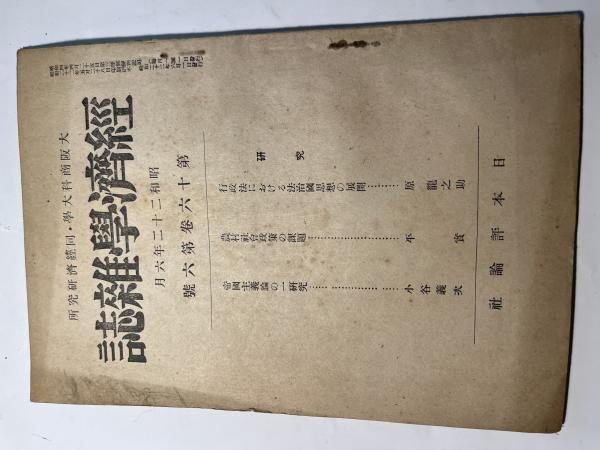 大阪商科大學・同經濟研究所
經濟學雜誌
第十六卷第六號
昭和二十二年六月
研究
行政法における法治國思想の展開………原龍之助
農村社會政策の課題………平實
帝國主義論の一研究………小谷義次
日本評論社